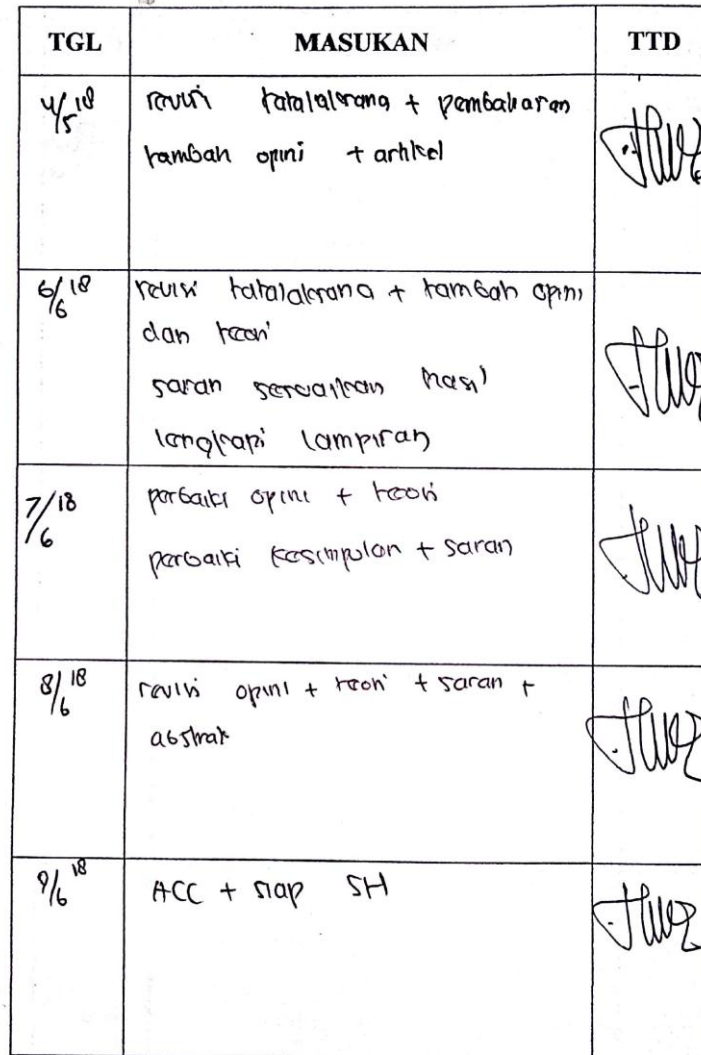 TGL MASUKAN TTD
4/5 18 revisi tatalaksana + pembahasan
tambah opini + artikel
6/6 18 revisi tatalaksana + tambah opini
dan teori
saran sesuaikan hasil
lengkapi lampiran
7/6 18 perbaiki opini + teori
perbaiki kesimpulan + saran
8/6 18 revisi opini + teori + saran +
abstrak
9/6 18 ACC + siap SH